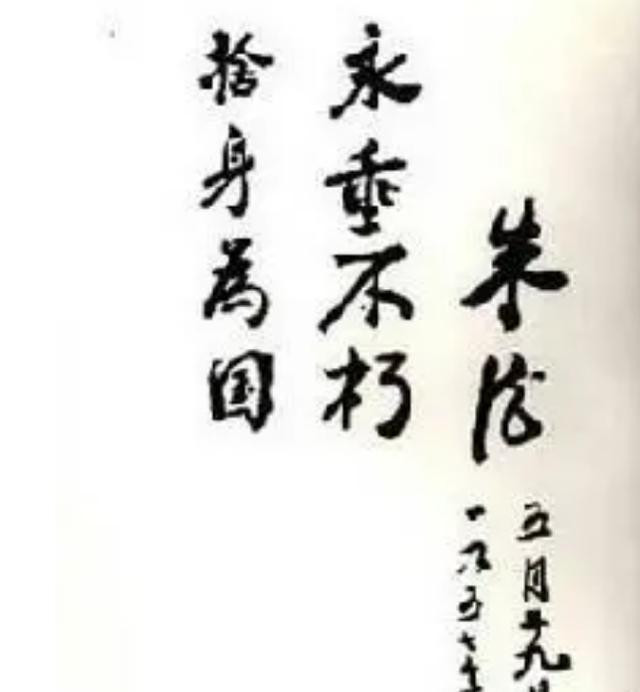 捨身為国
永垂不朽
朱德
一九五七年
五月九日